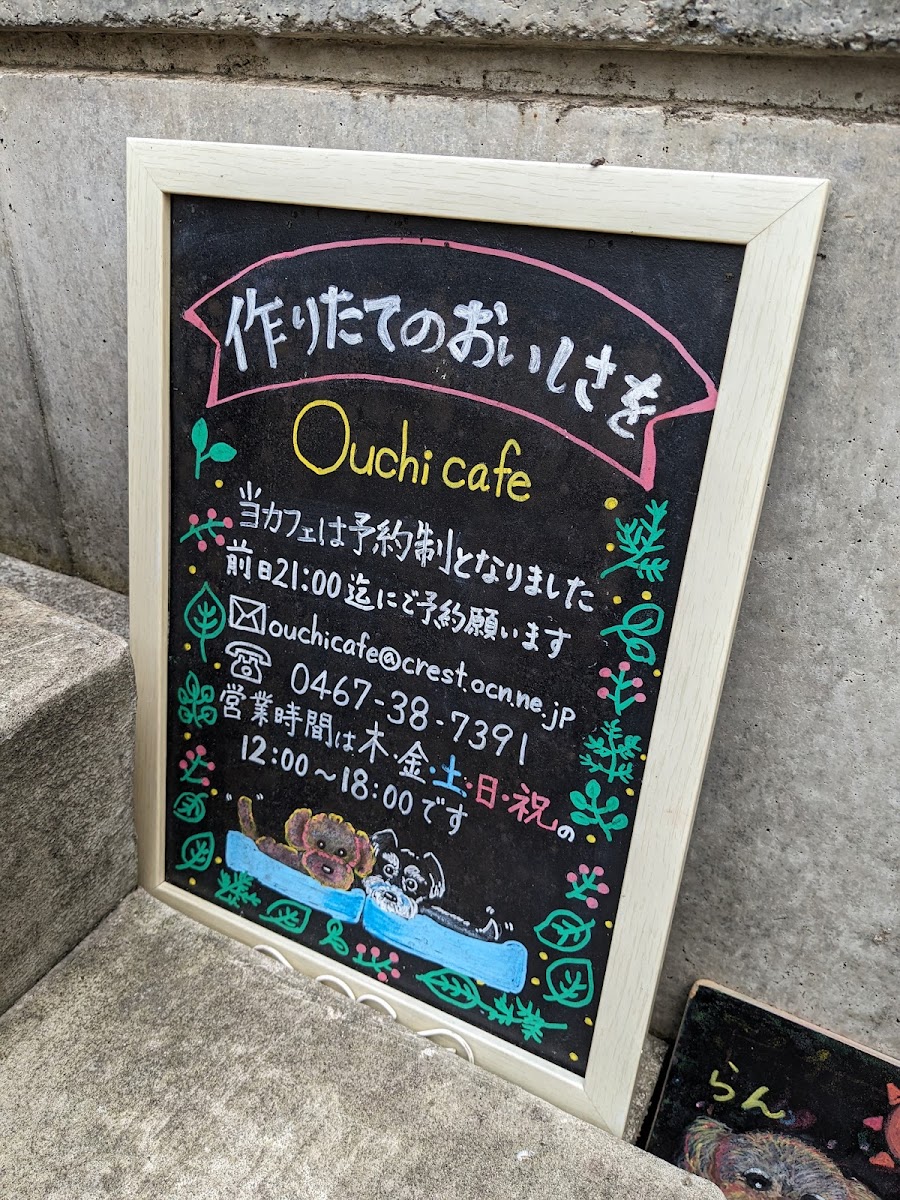 作りたてのおいしさを
Ouchi cafe
当カフェは予約制となりました
前日21:00迄にご予約願います
ouchicafe@crest.ocn.ne.jp
0467-38-7391
営業時間は木・金・土・日・祝の
12:00～18:00です
らん